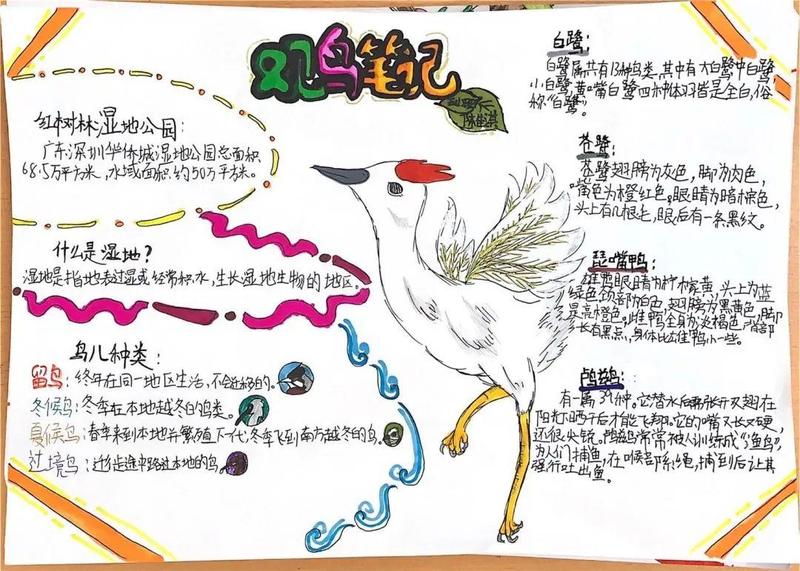 观鸟笔记
红树林湿地公园:
广东深圳华侨城湿地公园总面积
68.5万平方米,水域面积约50万平方米。
什么是湿地?
湿地是指地表过湿或经常积水,生长湿地生物的地区。
鸟儿种类:
留鸟:终年在同一地区生活,不会迁移的。
冬候鸟:冬季在本地越冬的鸟类。
夏候鸟:春季来到本地并繁殖下一代,冬季飞到南方越冬的鸟。
过境鸟:迁徙途中路过本地的鸟
白鹭:
白鹭属共有13种鸟类,其中有大白鹭,中白鹭,
小白鹭,黄嘴白鹭四种体羽皆是全白,俗
称“白鹭”。
苍鹭:
苍鹭翅膀为灰色,脚为肉色,
黄色为橙红色。眼睛为暗棕色,
头上有几根毛,眼后有一条黑纹。
琵嘴鸭:
雄鸭眼睛为柠檬黄,头上为蓝
绿色,颈部为白色,翅膀为黑黄色,脚
是亮橙色。雌鸭全身为淡褐色,
长有黑点,身体比雄鸭小一些。
鸬鹚:
有一属39种。它潜水后需张开双翅在
阳光晒干后才能飞翔。它的嘴又长又硬,
还很尖锐。鸬鹚常常被人训练成“渔鸟”,
为人们捕鱼,在喉部系绳,捕到后让其
强行吐出鱼。